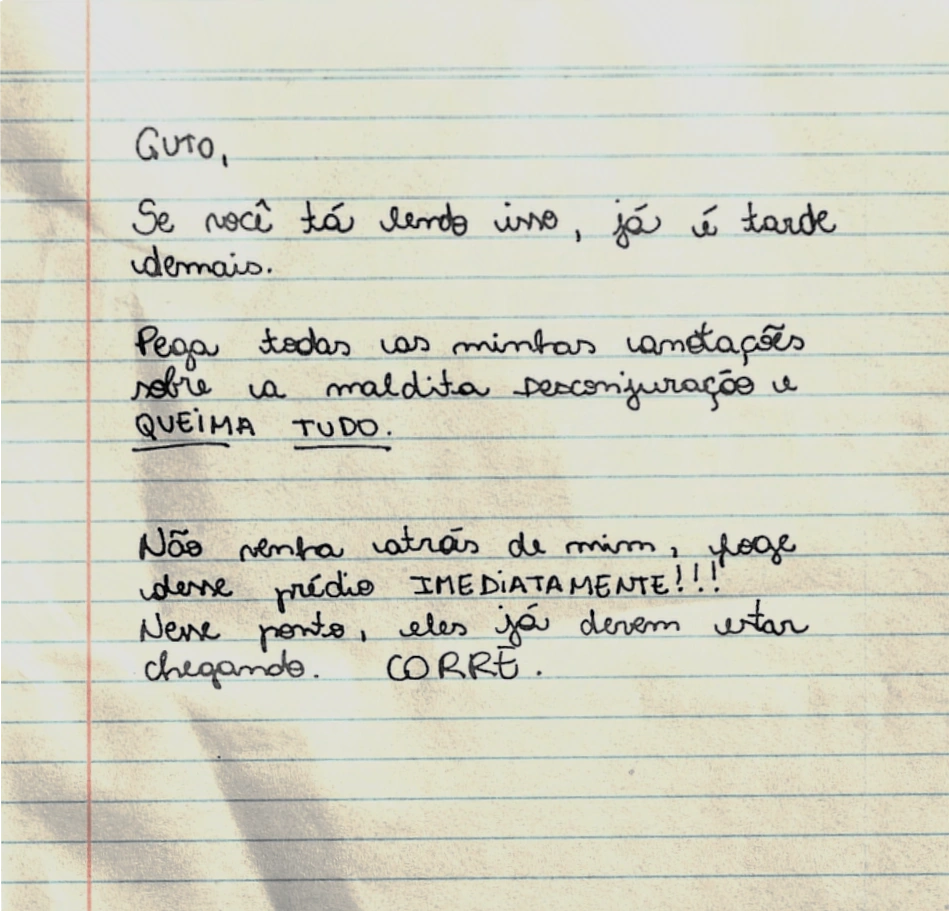 GUTO,
Se você tá lendo isso, já é tarde
demais.
Pega todas as minhas anotações
sobre a maldita Desconjuração e
QUEIMA TUDO.
Não venha atrás de mim, foge
desse prédio IMEDIATAMENTE!!!
Nesse ponto, eles já devem estar
chegando. CORRE.